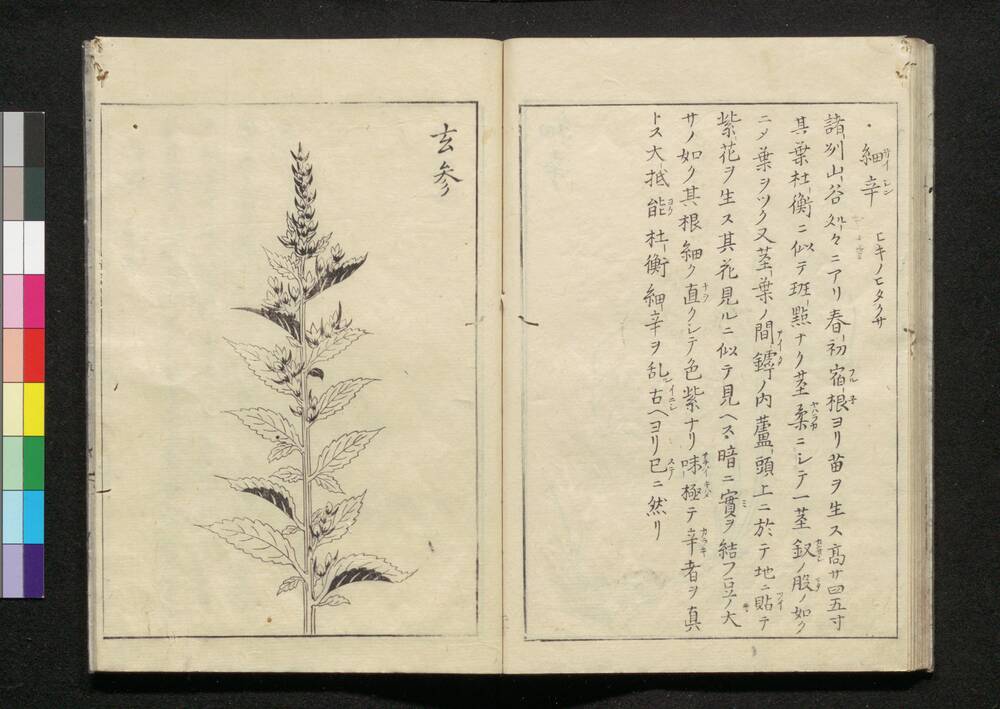 細辛 サイシン ヒキノヒタクサ
諸州山谷処々ニアリ春初宿根ヨリ苗ヲ生ス高サ四五寸
其葉杜衡ニ似テ班點ナク茎柔ニシテ一茎釵ノ股ノ如ク
ニメ葉ヲツク又茎葉ノ間罅ノ内蘆頭上ニ於テ地ニ貼テ
紫花ヲ生ス其花見ルニ似テ見ヘス暗ニ實ヲ結フ豆ノ大
サノ如ク其根細ク直クシテ色紫ナリ味極テ辛者ヲ真
トス大抵能杜衡細辛ヲ乱シ古ヘヨリ已ニ然リ
玄参